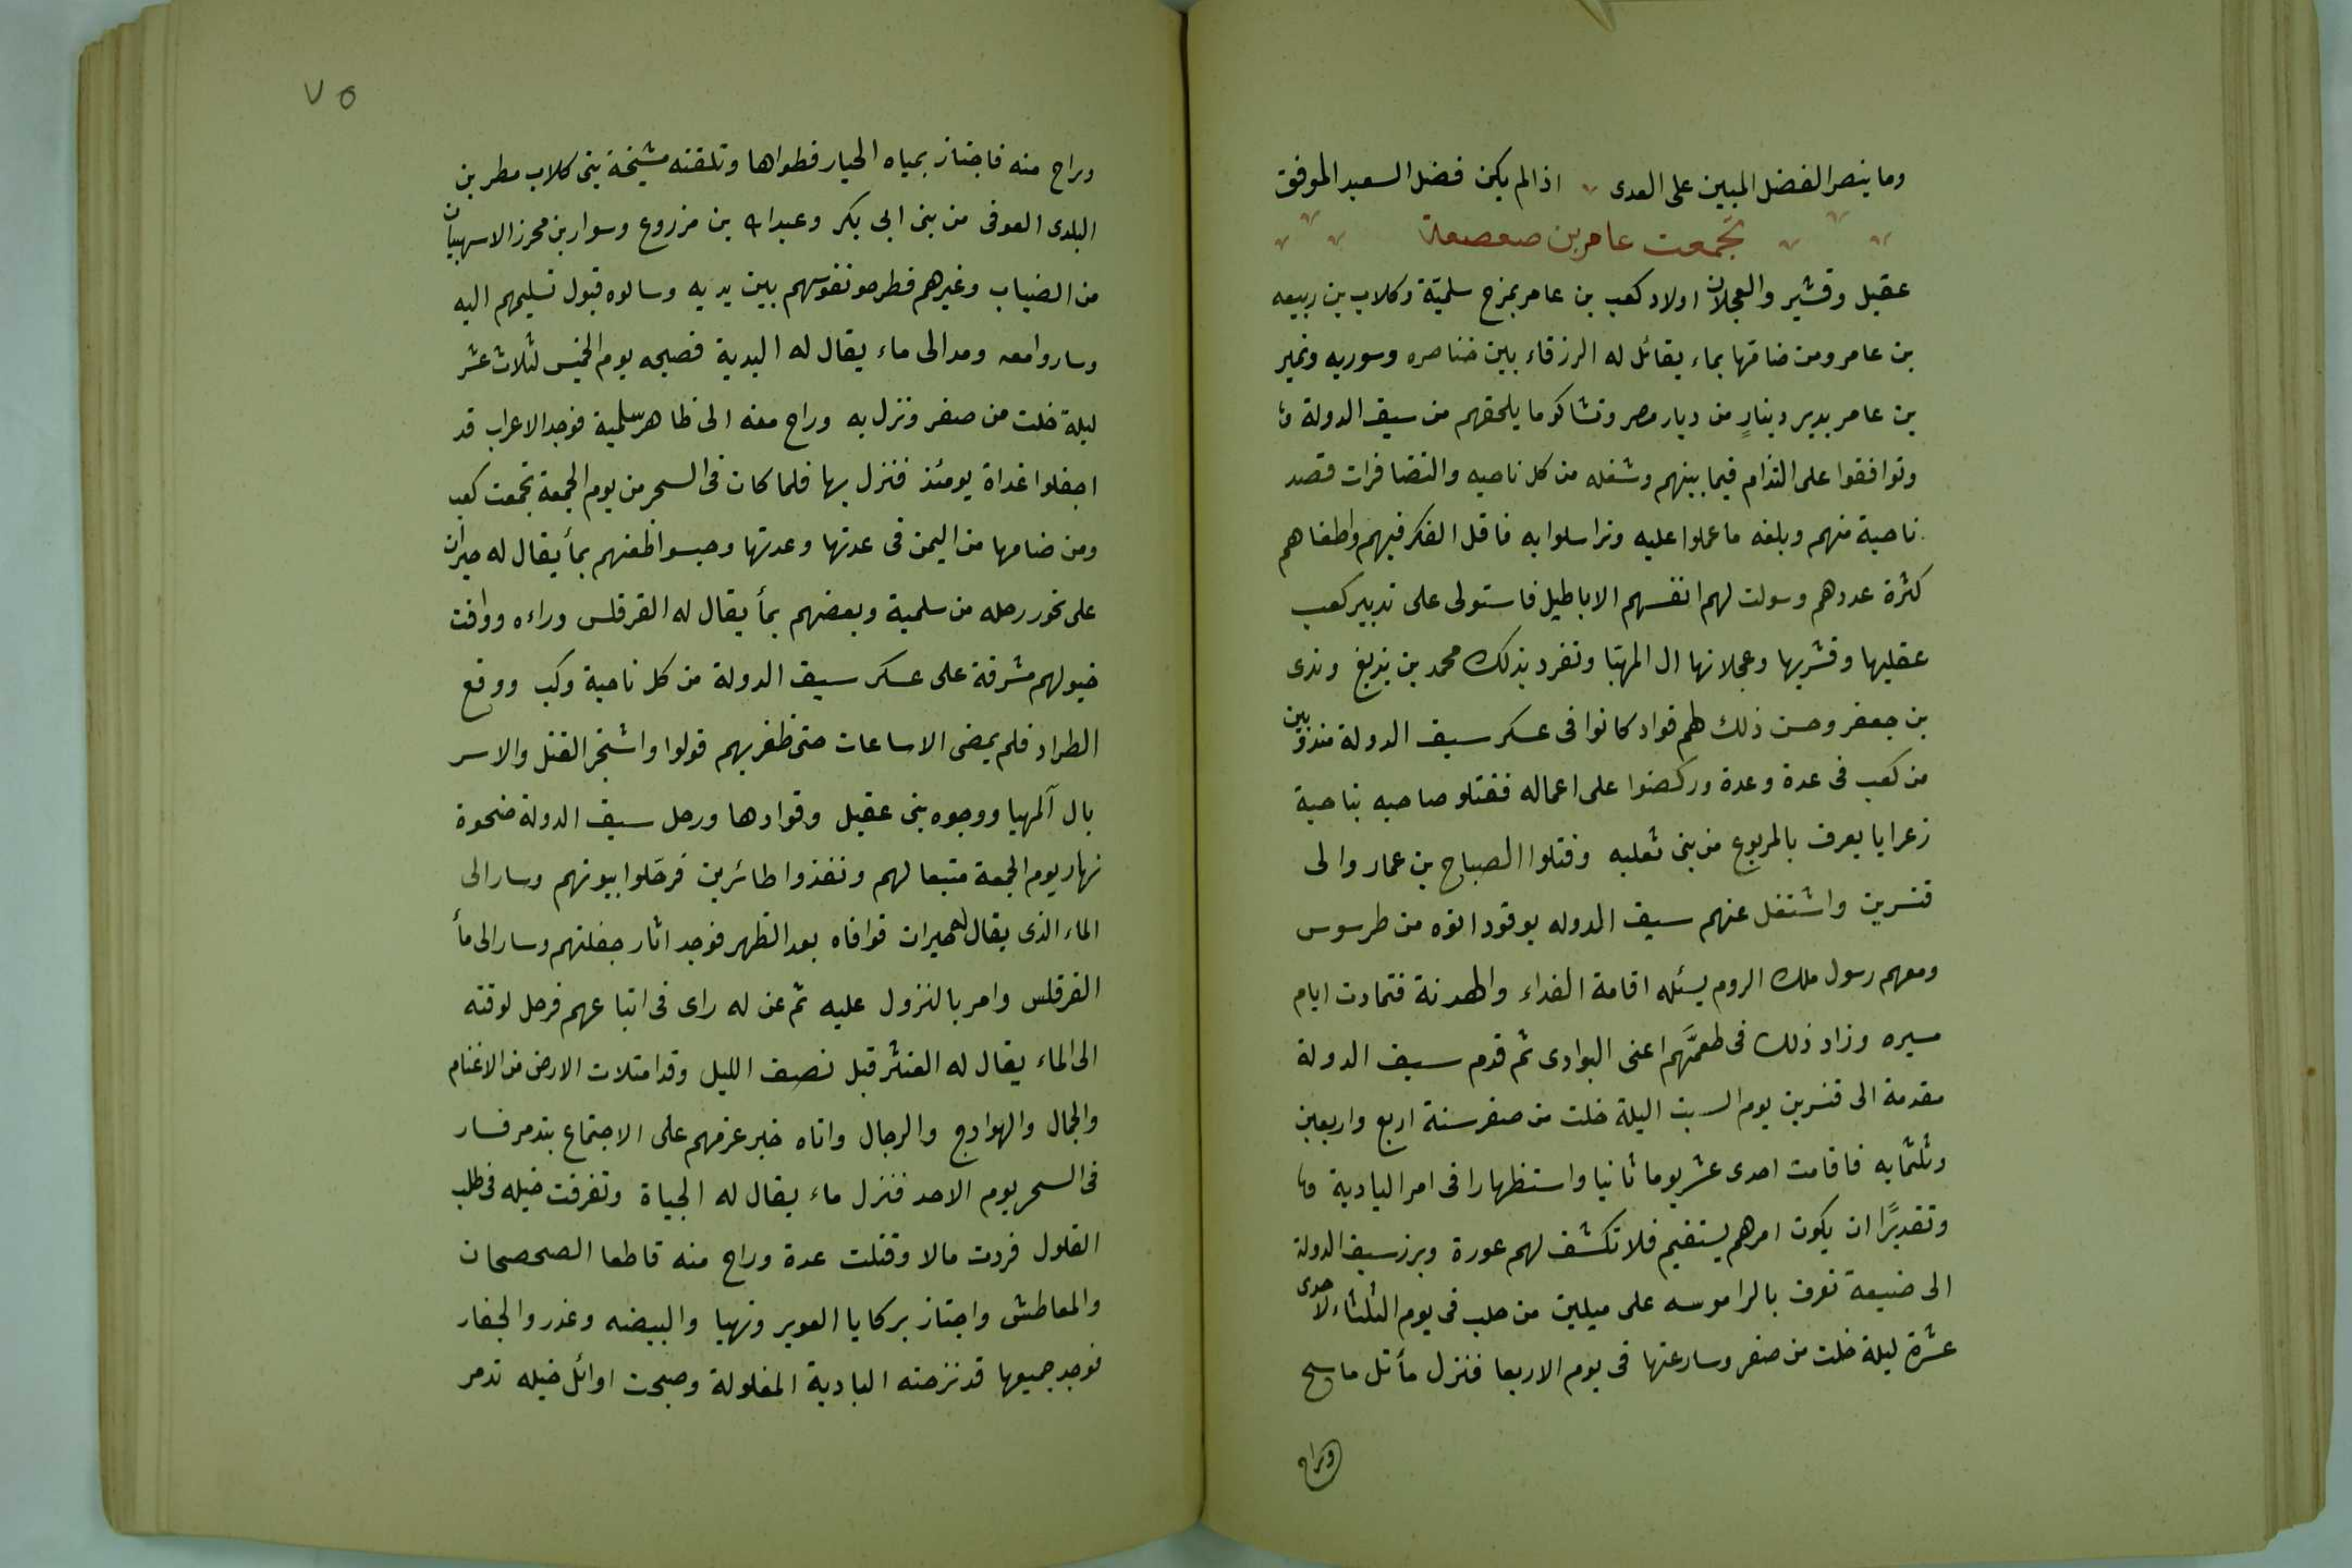 وما ينصر الفضل المبين على العدى اذا لم يكن فضل السعيد الموفق
تجمعت عامر بن صعصعة
عقيل وقشير والعجلان اولاد كعب بن عامر بمرج سلميّة وكلاب بن ربيعه
بن عامر ومن ضامّها بماء يقائل له الزرقاء بين خناصره وسوريه ونمير
بن عامر بدير دينارٍ من ديار مصر وتشاكو ما يلحقهم من سيف الدولة
وتوافقوا على التذام فيما بينهم وشغله من كل ناحيه والتضافرات قصد
ناحية منهم وبلغه ما عملوا عليه وتراسلوا به فاقل الفكر فيهم واطغاهم
كثرة عددهم وسولت لهم انفسهم الاباطيل فاستولى على تدبير كعب
عقليها وقشريها وعجلانها ال المهتا وتفرد بذلك محمد بن بزيع وندى
بن جعفر وحسن ذلك لهم قواد كانوا فى عسكر سيف الدولة منذوبين
من كعب فى عدة وعدة وركضوا على اعماله فقتلو صاحبه بناحية
زعرايا يعرف بالمربوع من بنى ثعلبه وقتلوا الصباح بن عمار والى
قنسرين واشتغل عنهم سيف الدوله بوقود اتوه من طرسوس
ومعهم رسول ملك الروم يسئله اقامة الفداء والهدنة فتمادت ايام
مسيره وزاد ذلك فى طعمَّهم اعنى البوادى ثم قدم سيف الدولة
مقدمة الى قنسرين يوم السبت اليلة خلت من صفر سنة اربع واربعين
وثلثمايه فاقامت احدى عشر يوما ثانيا واستظهارا فى امر البادية
وتقديرًا ان يكون امرهم يستقيم فلا تكشف لهم عورة وبرز سيف الدولة
الى ضيعة تعرف بالراموسه على ميلين من حلب فى يوم الثلثاء لاحدى
عشرة ليلة خلت من صفر وسار عنها فى يوم الاربعا فنزل مأ تل ماسح
وراح
٧٥
وراح منه فاجتاز بمياه الحيار فطواها وتلقته مشيخة بنى كلاب مطر بن
البلدى العوفى من بنى ابى بكر وعبد الله بن مزروع وسوار بن محرز الاسهبيان
من الضباب وغيرهم فطرحو نفوسهم بين يديه وسالوه قبول تسليمهم اليه
وساروا معه ومد الى ماء يقال له البدية فصبحه يوم الخميس لثلاث عشر
ليلة خلت من صفر ونزل به وراح معه الى ظاهر سلمية فوجد الاعراب قد
اجفلوا غداة يومئذ فنزل بها فلما كان فى السحر من يوم الجمعة تجمعت كعب
ومن ضامها من اليمن فى عدتها وعدتها وحبسوا ظعنهم بمأ يقال له حيران
على نحور رحله من سلمية وبعضهم بمأ يقال له القرقلس وراءه ووافت
خيولهم مشرقة على عسكر سيف الدولة من كل ناحية وكب ووقع
الطراد فلم يمضى الا ساعات حتى ظفر بهم فولوا واشتجر القتل والاسر
بال آلمهيا ووجوه بنى عقيل وقوادها ورحل سيف الدولة ضحوة
نهار يوم الجمعة متبعا لهم ونفذوا طائرين فَرحَلوا بيوتهم وسار الى
الماء الذى يقال له حيران فوافاه بعد الظهر فوجد اثار جفلتهم وسار الى مأ
القرقلس وامر بالنزول عليه ثم عن له راى فى اتباعهم فرحل لوقته
الى الماء يقال له الغنثر قبل نصف الليل وقد امتلات الارض من الاغنام
والجمال والهوادج والرحال واتاه خبر عزمهم على الاجتماع بتدمر فسار
فى السحر يوم الاحد فنزل ماء يقال له الجباة وتفرقت خيله فى طلب
الفلول فردت مالا وقتلت عدة وراح منه قاطعا الصحصحان
والمعاطش واجتاز بركايا العوير ونهيا والبيضه وغدر والجفار
فوجد جميعها قد نزحته البادية المفلولة وصبحت اوائل خيله تدمر